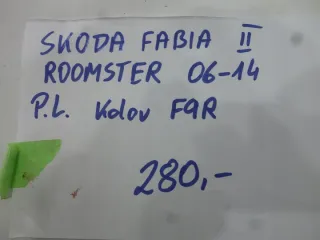 SKODA FABIA II
ROOMSTER 06-14
P.L. Kolov F9R
280,-